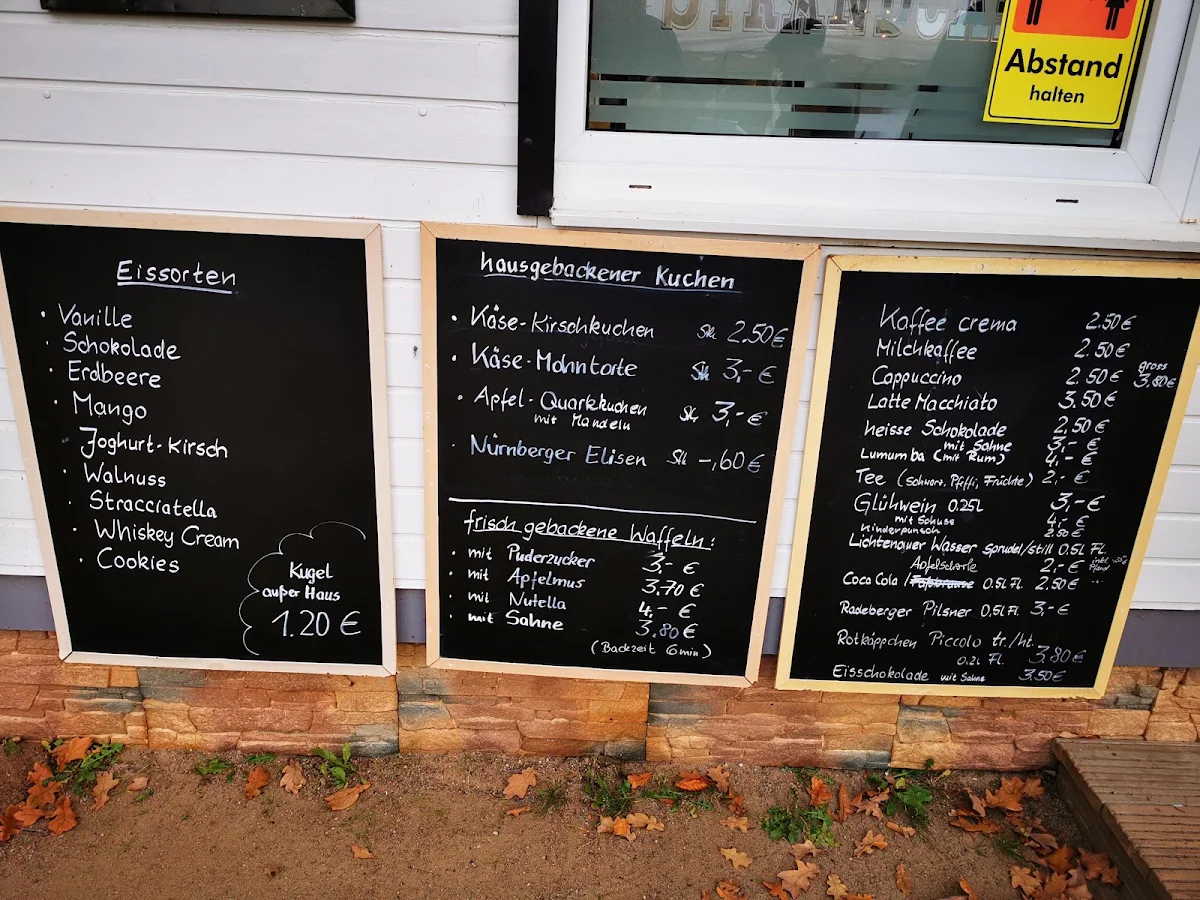 STRANDCA
Abstand
halten
Eissorten
· Vanille
· Schokolade
· Erdbeere
· Mango
· Joghurt-Kirsch
· Walnuss
· Stracciatella
· Whiskey Cream
· Cookies
Kugel
außer Haus
1.20 €
hausgebackener Kuchen
· Käse-Kirschkuchen Stk 2.50€
· Käse-Mohntorte Stk 3,- €
· Apfel-Quarkkuchen Stk 3,- €
mit Mandeln
· Nürnberger Elisen Stk -,60€
frisch gebackene Waffeln:
· mit Puderzucker 3,- €
· mit Apfelmus 3.70 €
· mit Nutella 4,- €
· mit Sahne 3.80€
(Backzeit 6min)
Kaffee crema 2.50€
Milchkaffee 2.50€
Cappuccino 2.50€ gross 3.80€
Latte Macchiato 3.50€
heisse Schokolade 2,50€
mit Sahne 3,- €
Lumumba (mit Rum) 4,- €
Tee (Schwarz, Pfeffi, Früchte) 2,- €
Glühwein 0.25l 3,- €
mit Schuss 4,- €
Kinderpunsch 2.50€
Lichtenauer Wasser Sprudel/still 0.5L Fl.
Apfelschorle 2,- € inkl. Pfand
Coca Cola / 0.5l Fl 2.50€
Radeberger Pilsner 0,5l Fl. 3,- €
Rotkäppchen Piccolo tr./ht.
0.2l Fl. 3.80€
Eisschokolade mit Sahne 3.50€